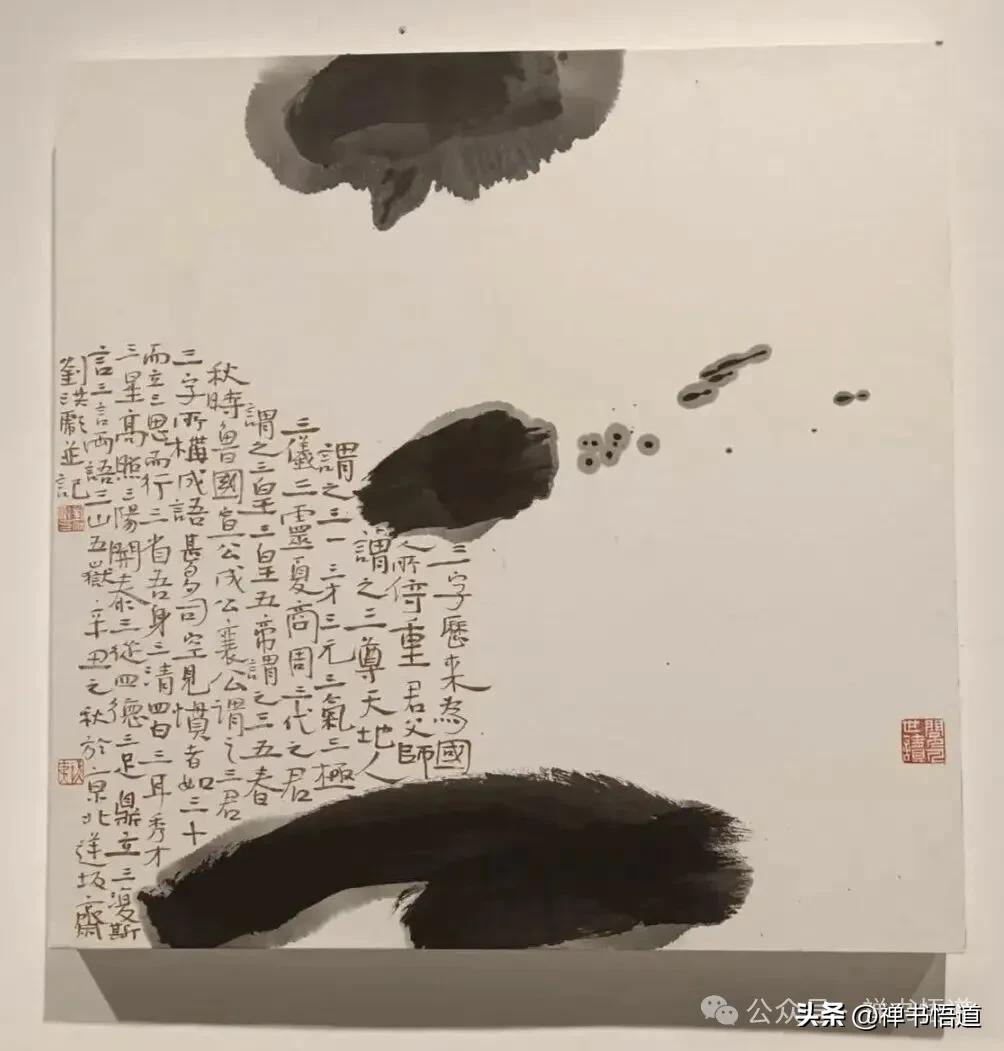 三字歷来為國
人所倚重君父師
謂之三尊天地人
謂之三一三才三元三氣三極
三儀三靈夏商周三代之君
謂之三皇三皇五帝謂之三五春
秋時魯國宣公成公襄公謂之三君
三字所構成語甚多司空見慣者如三十
而立三思而行三省吾身三清四白三耳秀才
三星高照三陽開泰三從四德三足鼎立三復斯
言三言两語三山五嶽辛丑之秋於京北坂齋
劉洪彪並記
公众号 禅书悟道
头条 @禅书悟道